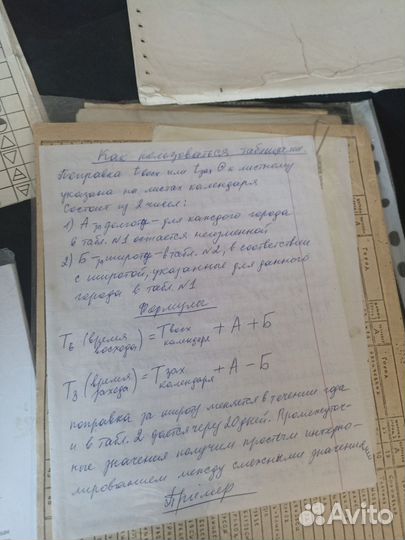 Как пользоваться таблицами
Поправка t восх или t зах ⊙ к местному
указана на листах календаря
Состоит из 2 чисел:
1) А долготу - для каждого города
в табл. №1 остается неизменной
2) Б - широту - в табл. №2, в соответствии
с широтой, указанные для данного
города в табл. №1
Формулы
Tв (время восхода) = T восх календаря + А + Б
Tз (время захода) = T зах календаря + А - Б
поправка за широту меняется в течении года
и в табл. 2 дается через 20 дней. Промежуточ-
ные значения получим простым интерпо-
лированием между смежными значениями
Пример
Avito